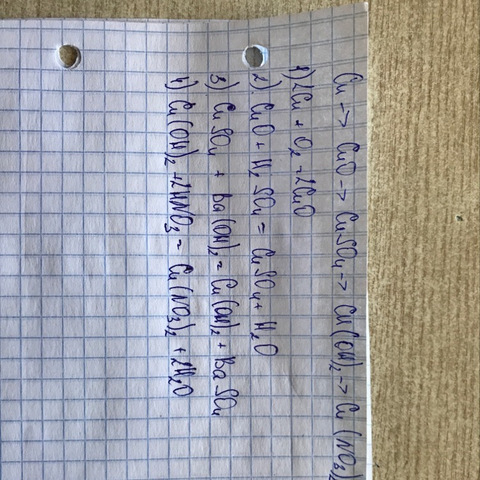 Cu → CuO → CuSO₄ → Cu(OH)₂ → Cu(NO₃)₂
1) 2Cu + O₂ = 2CuO
2) CuO + H₂SO₄ = CuSO₄ + H₂O
3) CuSO₄ + Ba(OH)₂ = Cu(OH)₂ + BaSO₄
4) Cu(OH)₂ + 2HNO₃ = Cu(NO₃)₂ + 2H₂O